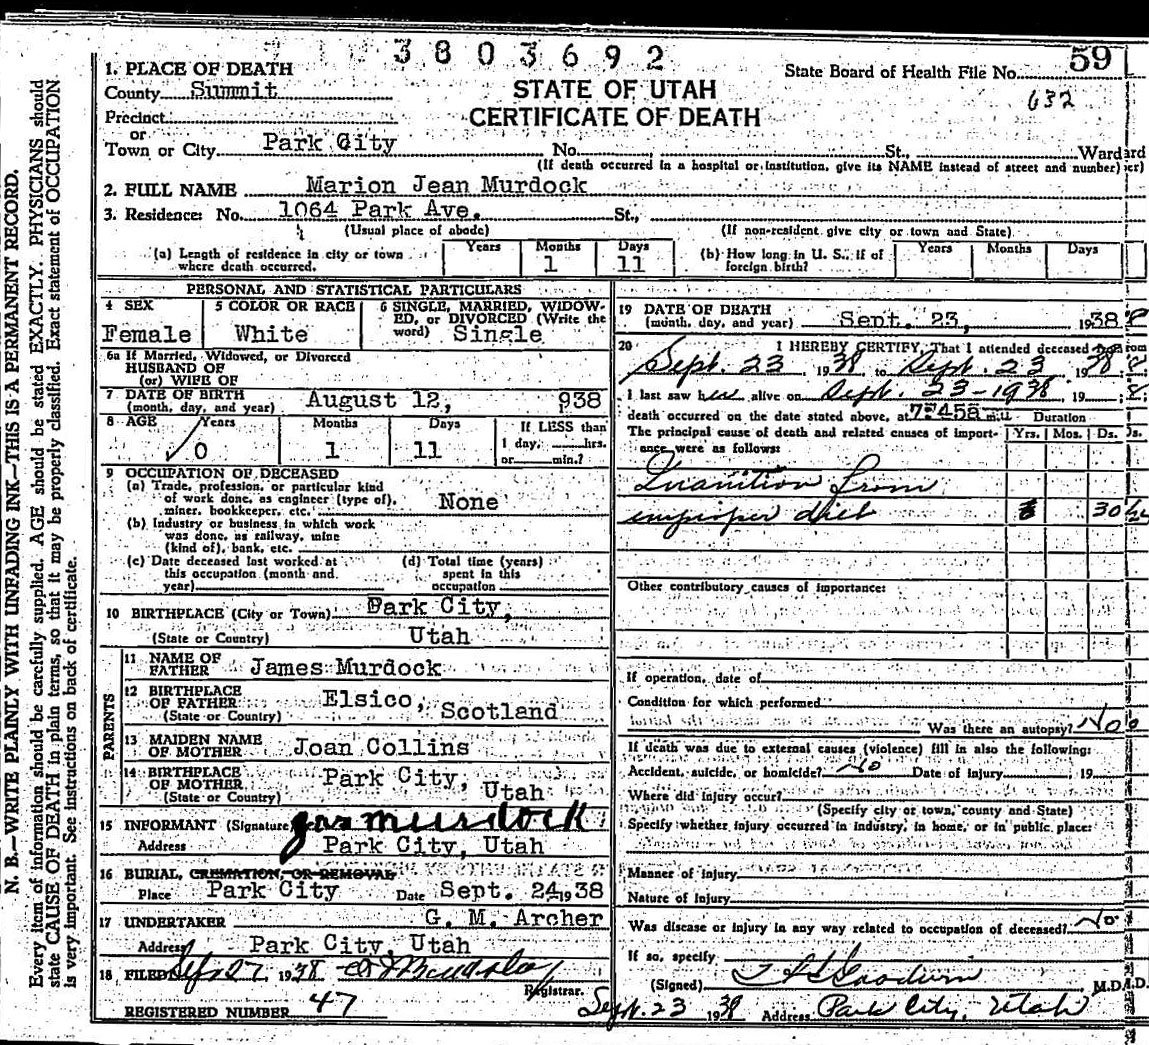 3803692
59
1. PLACE OF DEATH
County Summit
STATE OF UTAH
State Board of Health File No.
632
Precinct
CERTIFICATE OF DEATH
or
Town or City Park City No. St., Ward
(If death occurred in a hospital or institution, give its NAME instead of street and number)
2. FULL NAME Marion Jean Murdock
3. Residence: No. 1064 Park Ave. St.,
(Usual place of abode) (If non-resident give city or town and State)
(a) Length of residence in city or town where death occurred. Years Months 1 Days 11
(b) How long in U. S., if of foreign birth? Years Months Days
PERSONAL AND STATISTICAL PARTICULARS
4 SEX Female
5 COLOR OR RACE White
6 SINGLE, MARRIED, WIDOWED, or DIVORCED (Write the word) Single
6a If Married, Widowed, or Divorced
HUSBAND OF
(or) WIFE OF
7 DATE OF BIRTH
(month, day, and year) August 12, 938
8 AGE Years 0 Months 1 Days 11
If LESS than
1 day, hrs.
or min.?
9 OCCUPATION OF DECEASED
(a) Trade, profession, or particular kind
of work done, as engineer (type of),
miner, bookkeeper, etc. None
(b) Industry or business in which work
was done, as railway, mine
(kind of), bank, etc.
(c) Date deceased last worked at
this occupation (month and
year)
(d) Total time (years)
spent in this
occupation
10 BIRTHPLACE (City or Town) Park City,
(State or Country) Utah
PARENTS
11 NAME OF
FATHER James Murdock
12 BIRTHPLACE
OF FATHER Elsico, Scotland
(State or Country)
13 MAIDEN NAME
OF MOTHER Joan Collins
14 BIRTHPLACE
OF MOTHER Park City, Utah
(State or Country)
15 INFORMANT (Signature) Jas Murdock
Address Park City, Utah
16 BURIAL, CREMATION, OR REMOVAL
Place Park City Date Sept. 24 1938
17 UNDERTAKER G. M. Archer
Address Park City, Utah
18 FILED Sept 27, 1938
Registrar.
REGISTERED NUMBER 47
19 DATE OF DEATH
(month, day, and year) Sept. 23, 1938
20 I HEREBY CERTIFY, That I attended deceased from
Sept. 23, 1938 to Sept. 23 1938
I last saw her alive on Sept. 23-1938, 19
death occurred on the date stated above, at 7:45a m. Duration
The principal cause of death and related causes of importance were as follows: Yrs. Mos. Ds.
Inanition from
improper diet 30
Other contributory causes of importance:
If operation, date of
Condition for which performed
Was there an autopsy? No
If death was due to external causes (violence) fill in also the following:
Accident, suicide, or homicide? No Date of injury 19
Where did injury occur?
(Specify city or town, county and State)
Specify whether injury occurred in industry, in home, or in public place:
Manner of injury
Nature of injury
Was disease or injury in any way related to occupation of deceased? No
If so, specify
(Signed) M.D.
Sept. 23 1938 Address Park City, Utah
N. B.—WRITE PLAINLY WITH UNFADING INK—THIS IS A PERMANENT RECORD.
Every item of information should be carefully supplied. AGE should be stated EXACTLY. PHYSICIANS should
state CAUSE OF DEATH in plain terms, so that it may be properly classified. Exact statement of OCCUPATION
is very important. See instructions on back of certificate.